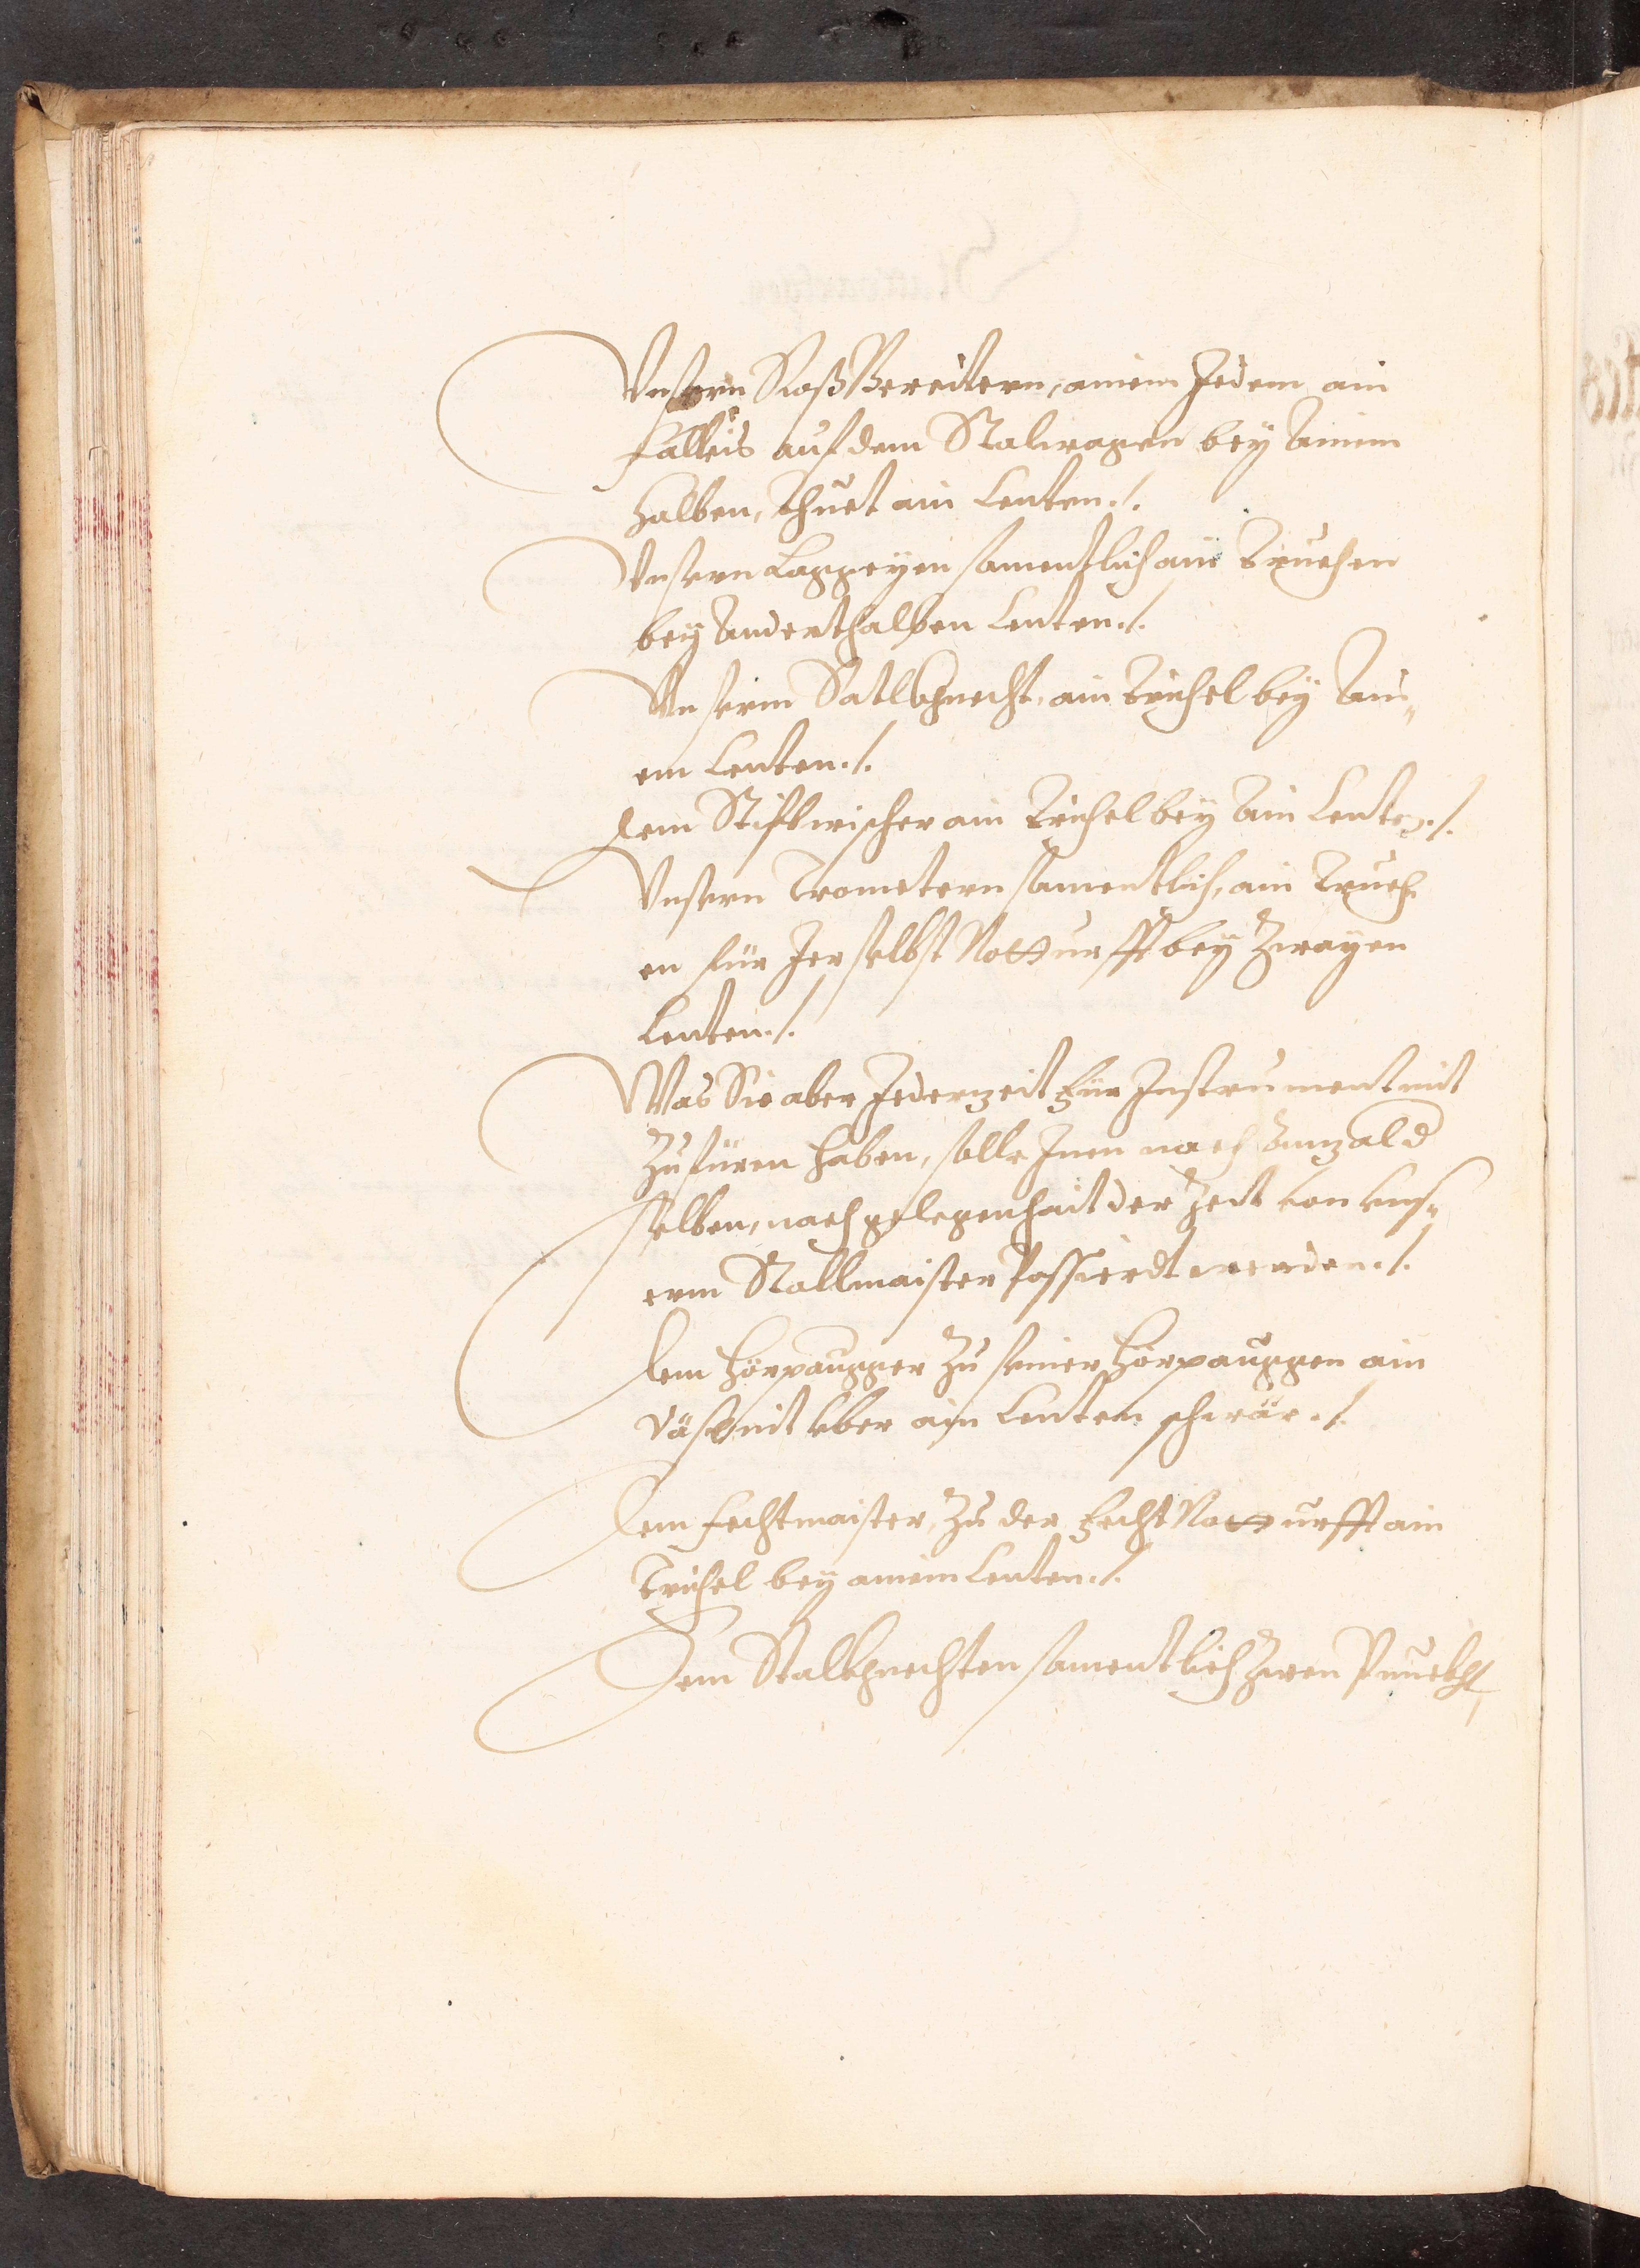 Vnsern Roß Bereitern, ainem Jedem ain
Falleis auf dem Stalwagen bey Ainem
halben, Thuet ain Centen ./.
Vnsern Laggeyen samentlich ain Truchen
bey Anderthalben Centen ./.
Vnserm Satlkhnecht, ain Trichel bey Ain„
em Centen ./.
Dem Stiflwischer ain Trichel bey Ain Centen ./.
Vnsern Trometern samentlich, ain Truch
en für Jer selbst Notturfft bey Zwayen
Centen ./.
Was Sie aber Jederzeit für Instrument mit
Zufüren haben, solle Inen nach Anzal d
selben, nach gelegenhait der Zeit von vns„
erm Stallmaister Passierdt werden ./.
Dem Hörpaugger Zu seiner Hörpauggen ain
Väßl nit vber ain Centen schwär ./.
Dem Fechtmaister, Zu der Fecht Notturfft ain
Trichel bey ainem Centen ./.
Den Stalkhnechten samentlich Zwen